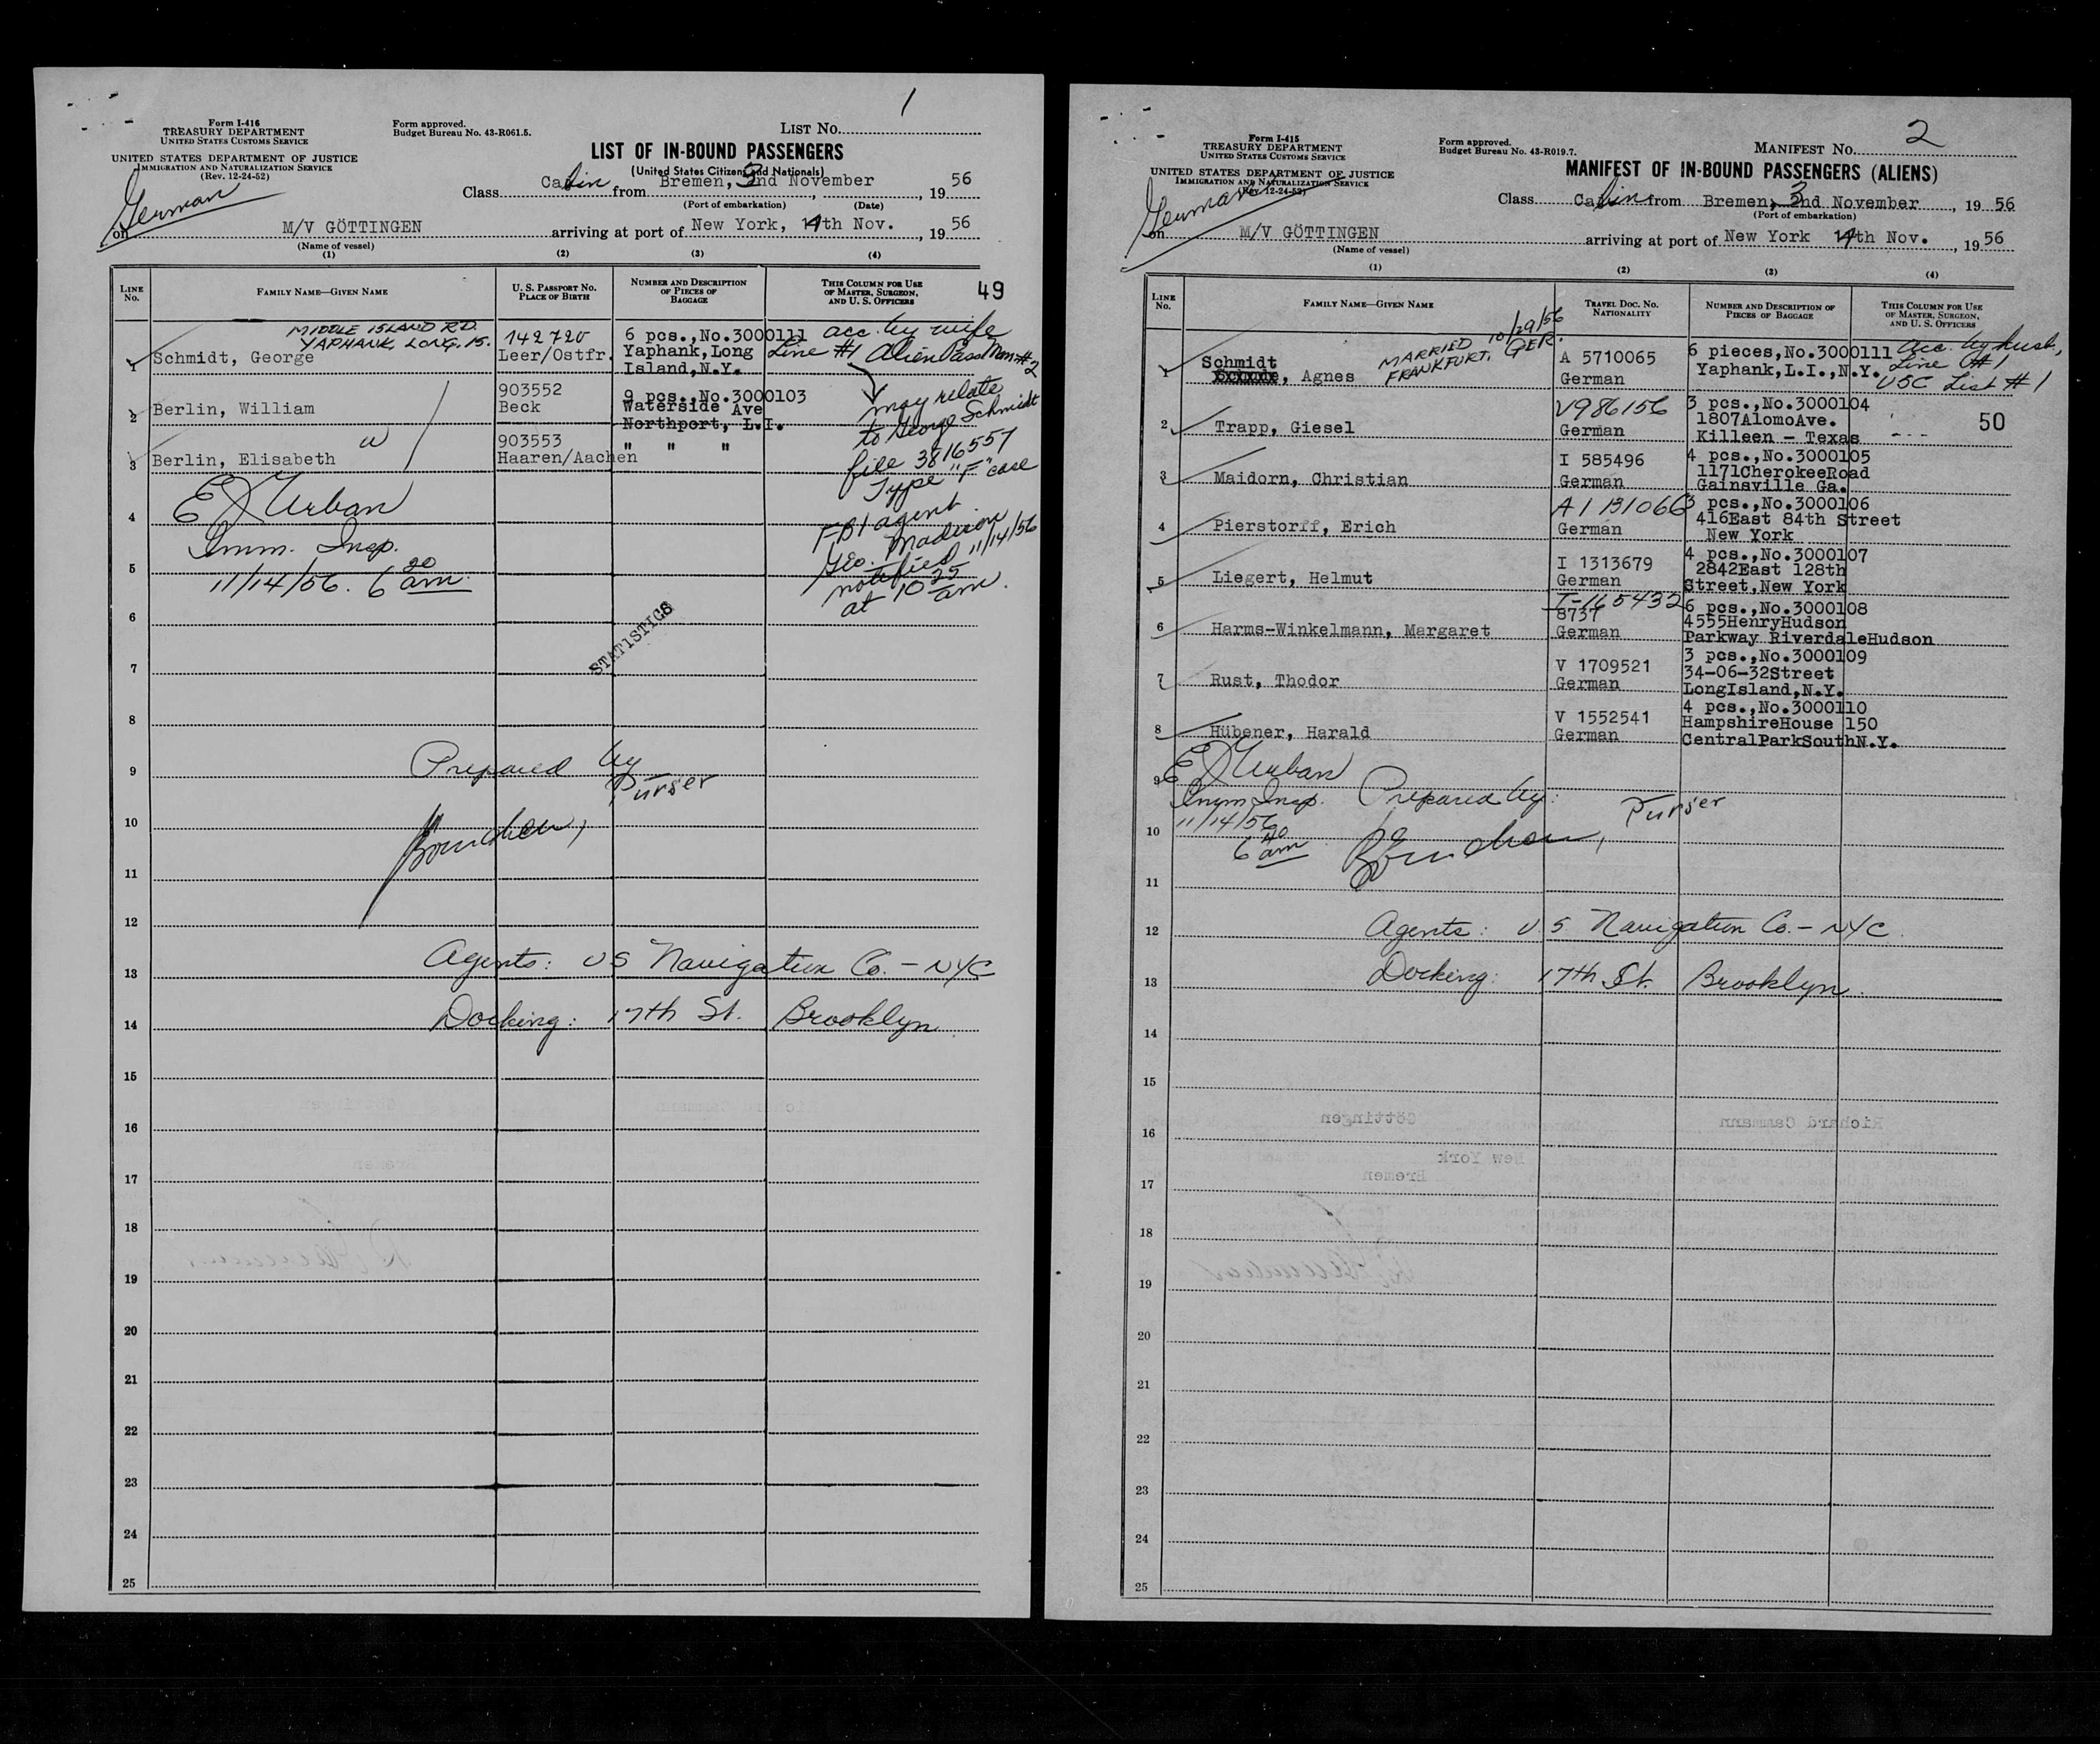 1
Form I-416
TREASURY DEPARTMENT
UNITED STATES CUSTOMS SERVICE
UNITED STATES DEPARTMENT OF JUSTICE
IMMIGRATION AND NATURALIZATION SERVICE
(Rev. 12-24-52)
Form approved.
Budget Bureau No. 43-R061.5.
LIST NO.
LIST OF IN-BOUND PASSENGERS
(United States Citizens and Nationals)
German
Class Cabin from Bremen, 3nd November, 1956
(Port of embarkation) (Date)
on M/V GÖTTINGEN arriving at port of New York, 14th Nov., 1956
(Name of vessel)
(1) (2) (3) (4)
LINE NO.
FAMILY NAME—GIVEN NAME
U. S. PASSPORT NO.
PLACE OF BIRTH
NUMBER AND DESCRIPTION
OF PIECES OF
BAGGAGE
THIS COLUMN FOR USE
OF MASTER, SURGEON,
AND U. S. OFFICERS
49
1 Schmidt, George
MIDDLE ISLAND RD.
YAPHANK, LONG. IS.
142720
Leer/Ostfr.
6 pcs.,No.3000111
Yaphank,Long
Island,N.Y.
acc. by wife
Line #1 Alien Pass Man. #2
2 Berlin, William
903552
Beck
9 pcs.,No.3000103
Waterside Ave
Northport, L.I.
3 Berlin, Elisabeth
W
903553
Haaren/Aachen
" " "
may relate
to George Schmidt
file 3816557
Type "F" case
FBI agent
Geo. Madison
notified 11/14/56
at 10 25 am.
4
E J Urban
Imm. Insp.
5
11/14/56. 6 20 am.
6
STATISTICS
7
8
9
Prepared by
Purser
10
11
12
13
Agents: US Navigation Co. - NYC
14
Docking: 17th St. Brooklyn
15
16
17
18
19
20
21
22
23
24
25
2
Form I-415
TREASURY DEPARTMENT
UNITED STATES CUSTOMS SERVICE
UNITED STATES DEPARTMENT OF JUSTICE
IMMIGRATION AND NATURALIZATION SERVICE
(Rev. 12-24-52)
Form approved.
Budget Bureau No. 43-R019.7.
MANIFEST NO.
MANIFEST OF IN-BOUND PASSENGERS (ALIENS)
German
Class Cabin from Bremen, 3nd November, 1956
(Port of embarkation)
on M/V GÖTTINGEN arriving at port of New York 14th Nov., 1956
(Name of vessel)
(1) (2) (3) (4)
LINE NO.
FAMILY NAME—GIVEN NAME
TRAVEL DOC. NO.
NATIONALITY
NUMBER AND DESCRIPTION OF
PIECES OF BAGGAGE
THIS COLUMN FOR USE
OF MASTER, SURGEON,
AND U. S. OFFICERS
1 Schmidt, Agnes
MARRIED 10/29/56
FRANKFURT, GER.
A 5710065
German
6 pieces,No.3000111
Yaphank,L.I.,N.Y.
acc. by husb,
Line #1
USC List #1
2 Trapp, Giesel
V986156
German
3 pcs.,No.3000104
1807AlomoAve.
Killeen - Texas
50
3 Maidorn, Christian
I 585496
German
4 pcs.,No.3000105
1171CherokeeRoad
Gainsville Ga.
4 Pierstorff, Erich
A1131066
German
3 pcs.,No.3000106
416East 84th Street
New York
5 Liegert, Helmut
I 1313679
German
4 pcs.,No.3000107
2842East 128th
Street,New York
6 Harms-Winkelmann, Margaret
I-165432
8737
German
6 pcs.,No.3000108
4555HenryHudson
Parkway RiverdaleHudson
7 Rust, Thodor
V 1709521
German
3 pcs.,No.3000109
34-06-32Street
LongIsland,N.Y.
8 Hübener, Harald
V 1552541
German
4 pcs.,No.3000110
HampshireHouse 150
CentralParkSouthN.Y.
9
E J Urban
Imm Insp.
Prepared by:
Purser
10
11/14/56
6 20 am
11
12
Agents: US Navigation Co. - NYC
13
Docking: 17th St. Brooklyn
14
15
Göttingen
Richard Cammann
16
New York
17
Bremen
18
19
20
21
22
23
24
25